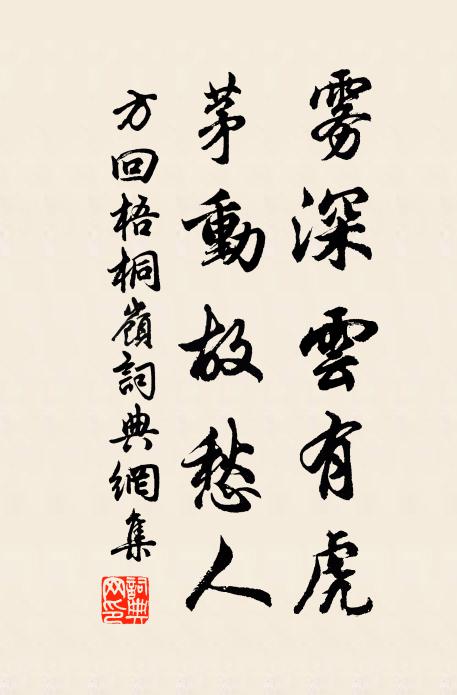 雾深雲有虎
茅動故愁人
方回梧桐嶺詞典網集
詞典網印